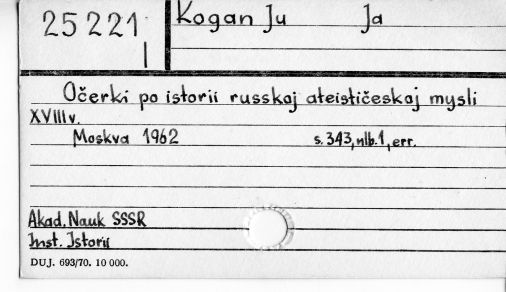 25221 Kogan Ju Ja
I
Očerki po istorii russkoj ateističeskoj mysli
XVIII v.
Moskva 1962 s. 343, nlb. 1, err.
Akad. Nauk SSSR
Inst. Istorii
DUJ. 693/70. 10 000.